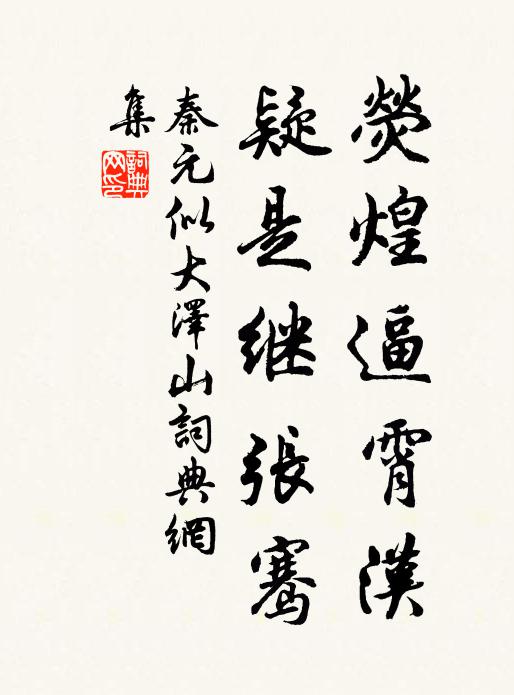 熒煌逼霄漢
疑是继張騫
秦元似大澤山詞典網
集
詞典
网印